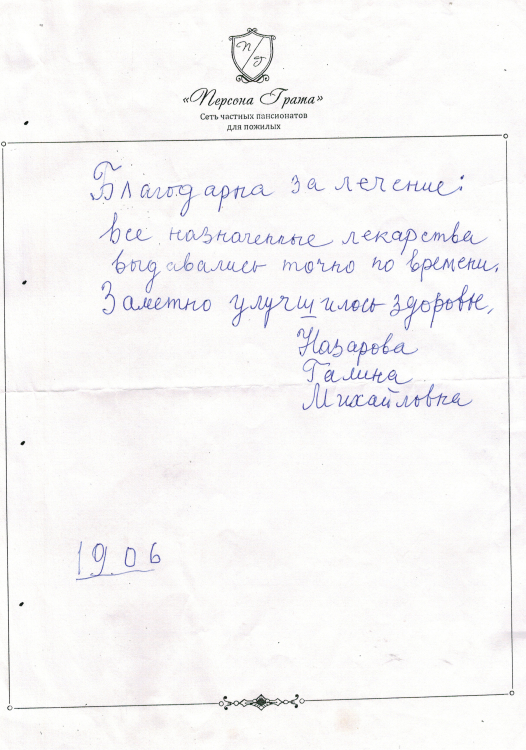 П Г
«Персона Грата»
Сеть частных пансионатов
для пожилых
Благодарна за лечение:
все назначенные лекарства
выдавались точно по времени.
Заметно улучшилось здоровье.
Назарова
Галина
Михайловна
19.06